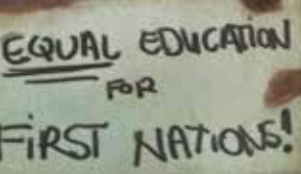 EQUAL EDUCATION
FOR
FIRST NATIONS!